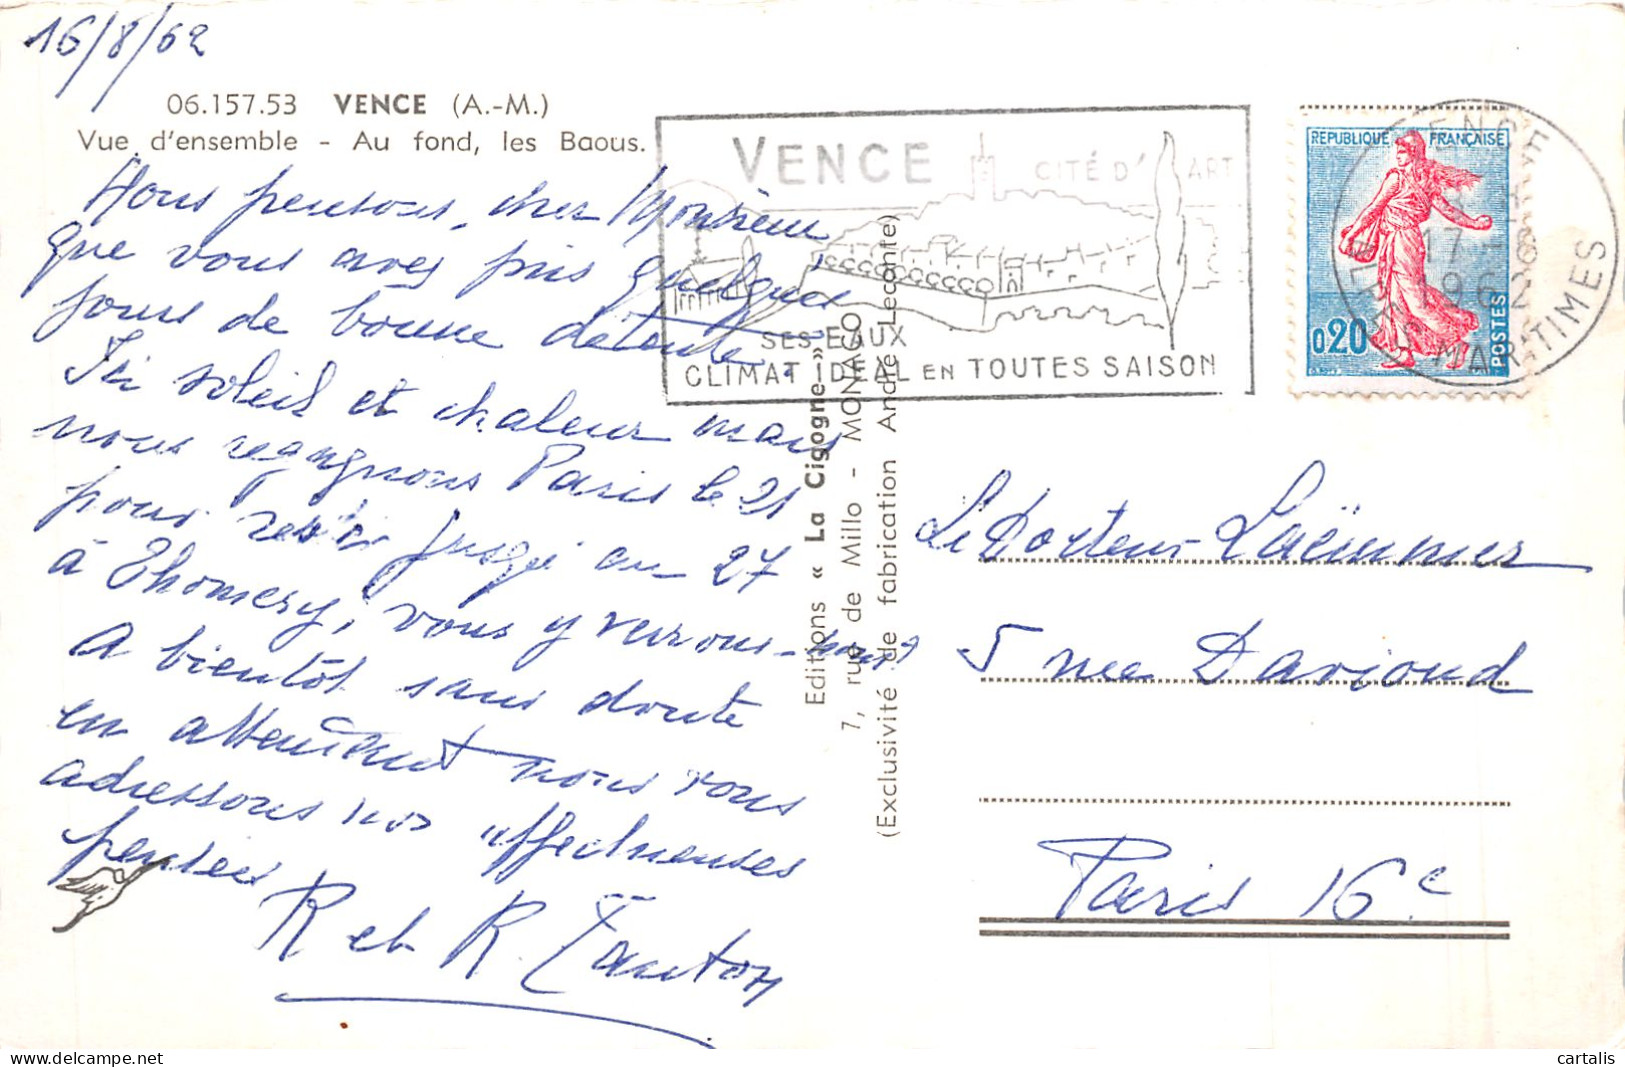 16/8/62
06.157.53 VENCE (A.-M.)
Vue d'ensemble - Au fond, les Baous.
Nous pensons, cher Monsieur
que vous avez pris quelques
jours de bonne détente.
Ici soleil et chaleur mais
nous regagnons Paris le 21
pour rester jusqu'au 27
à Thomery, vous y verrons-nous ?
A bientôt sans doute
en attendant nous vous
adressons nos affectueuses
pensées
R et R. Tauton
Editions « La Cigogne »
7, rue de Millo - MONACO
(Exclusivité de fabrication André Leconte)
VENCE
CITÉ D'ART
SES EAUX
CLIMAT IDEAL EN TOUTES SAISON
REPUBLIQUE FRANÇAISE
0,20
POSTES
VENCE
17 -8
1962
ALPES MARITIMES
Le Docteur Laëmmer
5 rue Davioud
Paris 16e
cartalis